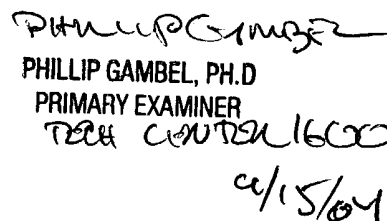 PHILLIP GAMBEL
PHILLIP GAMBEL, PH.D
PRIMARY EXAMINER
TECH CENTER 1600
4/15/04